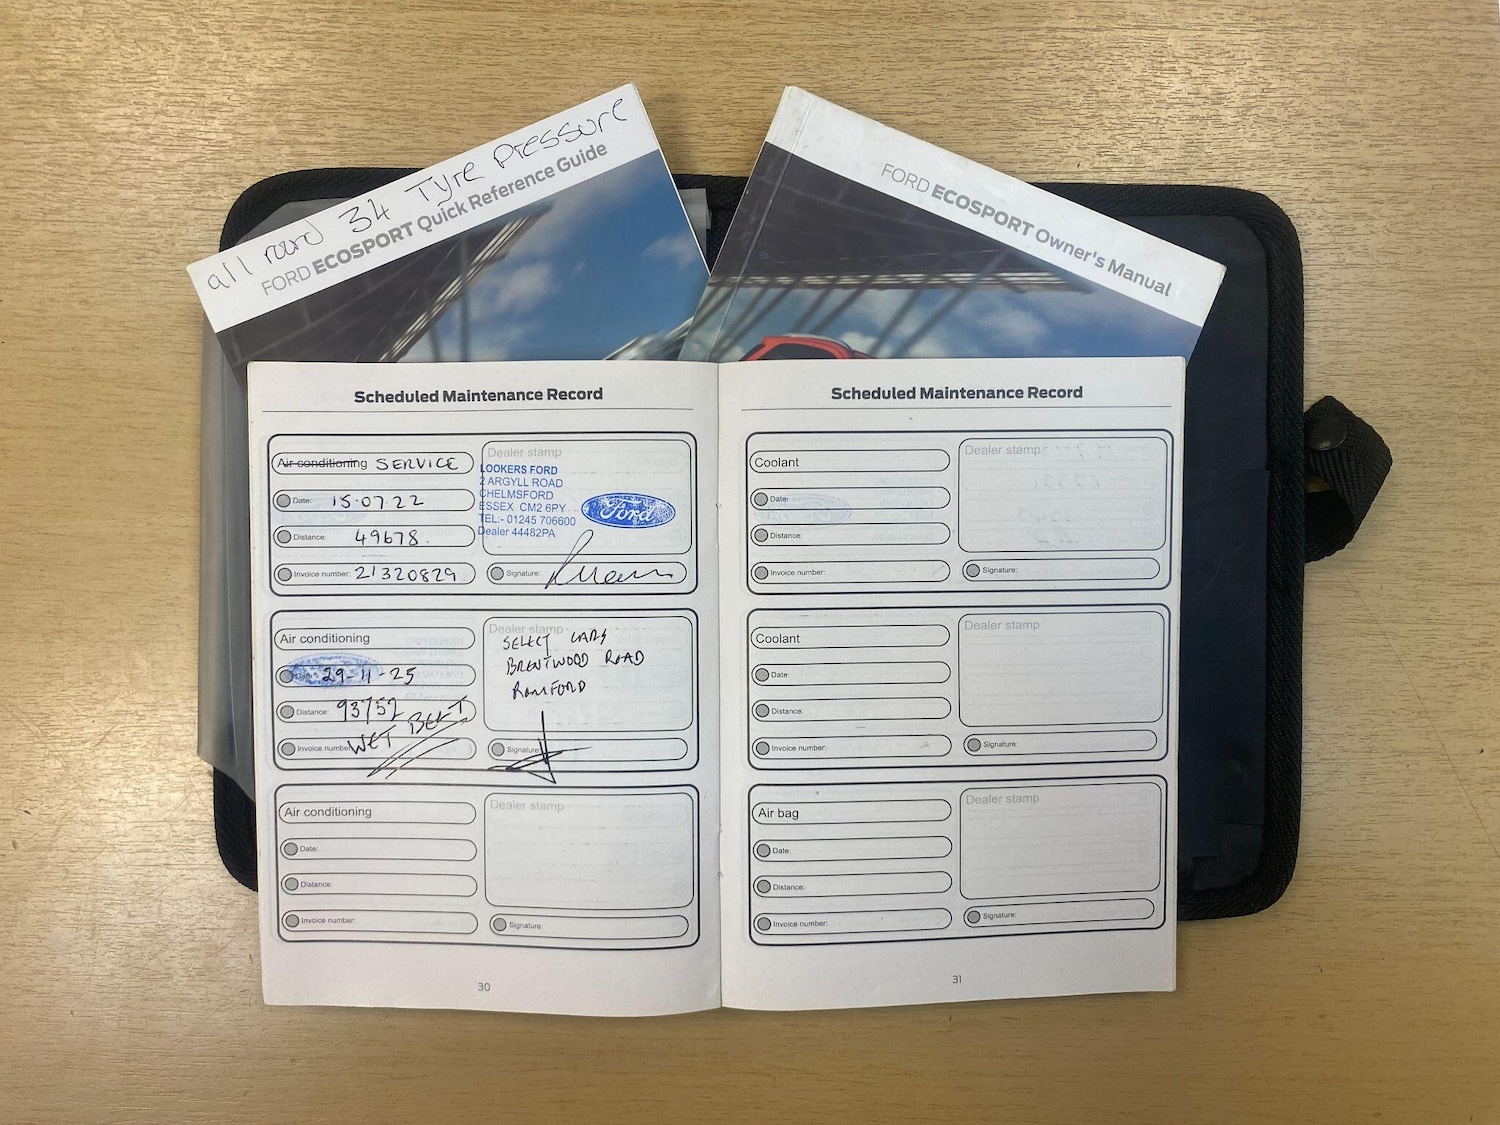 all round 34 Tyre Pressure
FORD ECOSPORT Quick Reference Guide
FORD ECOSPORT Owner's Manual
Scheduled Maintenance Record
Air conditioning SERVICE
Date: 15.07.22
Distance: 49678.
Invoice number: 21320829
Dealer stamp
LOOKERS FORD
2 ARGYLL ROAD
CHELMSFORD
ESSEX CM2 6PY
TEL:- 01245 706600
Dealer 44482PA
Ford
Signature:
Air conditioning
29-11-25
Distance: 93752
Invoice number: WET BELT
Dealer stamp
SELECT CARS
BRENTWOOD ROAD
ROMFORD
Signature:
Air conditioning
Date:
Distance:
Invoice number:
Dealer stamp
Signature:
30
Scheduled Maintenance Record
Coolant
Date:
Distance:
Invoice number:
Dealer stamp
Signature:
Coolant
Date:
Distance:
Invoice number:
Dealer stamp
Signature:
Air bag
Date:
Distance:
Invoice number:
Dealer stamp
Signature:
31